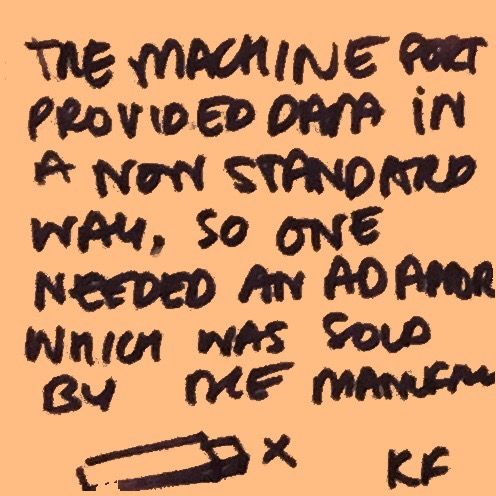 THE MACHINE PORT
PROVIDED DATA IN
A NON STANDARD
WAY, SO ONE
NEEDED AN ADAPTOR
WHICH WAS SOLD
BY THE MANUFAC
X KF